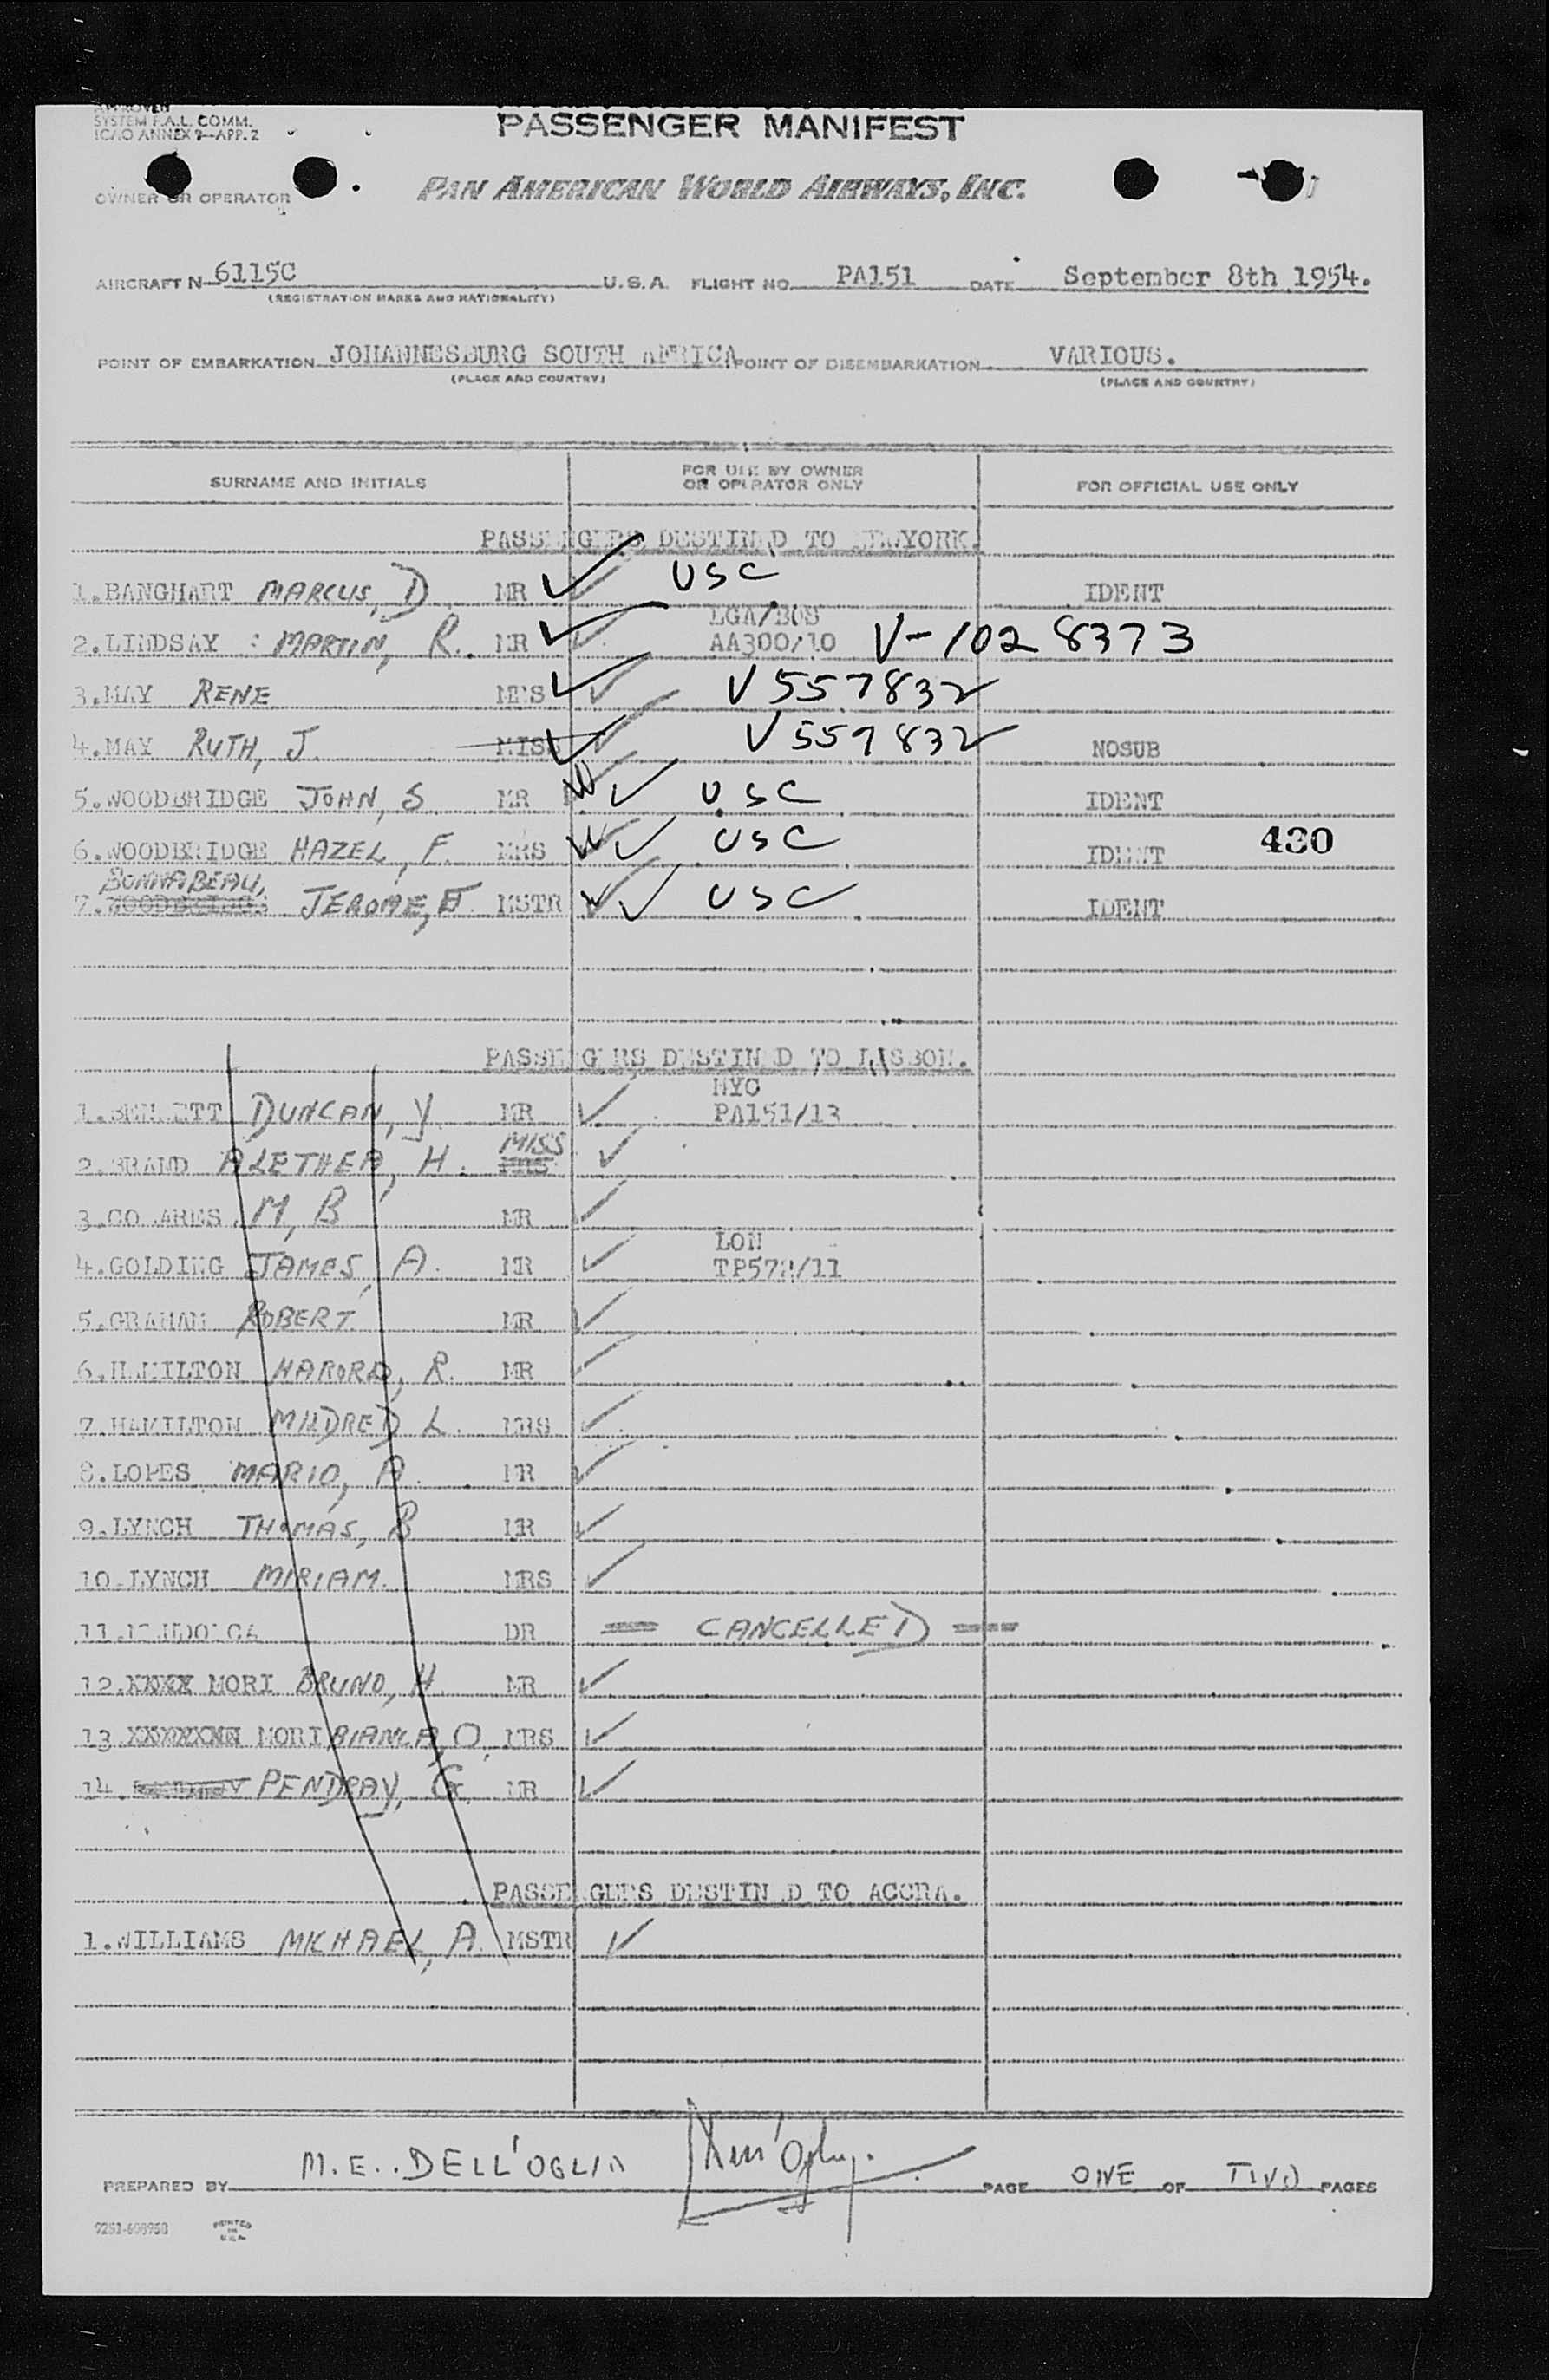 APPROVED
SYSTEM F.A.L. COMM.
ICAO ANNEX 9-APP. 2
PASSENGER MANIFEST
OWNER OR OPERATOR PAN AMERICAN WORLD AIRWAYS, INC.
AIRCRAFT N 6115C U.S.A. FLIGHT NO. PA151 DATE September 8th 1954.
(REGISTRATION MARKS AND NATIONALITY)
POINT OF EMBARKATION JOHANNESBURG SOUTH AFRICA POINT OF DISEMBARKATION VARIOUS.
(PLACE AND COUNTRY) (PLACE AND COUNTRY)
SURNAME AND INITIALS FOR USE BY OWNER OR OPERATOR ONLY FOR OFFICIAL USE ONLY
PASSENGERS DESTINED TO NEWYORK.
1.BANGHART MARCUS, D. MR USC IDENT
LGA/BOS
2.LINDSAY : MARTIN, R. MR AA300/10 V-1028373
3.MAY RENE MRS V557832
4.MAY RUTH, J. MISS V557832 NOSUB
5.WOODBRIDGE JOHN, S MR USC IDENT
6.WOODBRIDGE HAZEL, F. MRS USC IDENT 430
BONNABEAU,
7.WOODBRIDGE JEROME, E. MSTR USC IDENT
PASSENGERS DESTINED TO LISBON.
NYC
1. DUNCAN, Y. MR PA151/13
MISS
2.BRAND ALETHEA, H. MRS
3. M, B MR
LON
4.GOLDING JAMES, A. MR TP572/11
5.GRAHAM ROBERT. MR
6.HAMILTON HARORD, R. MR
7.HAMILTON MILDRED L. MRS
8.LOPES MARIO, A. MR
9.LYNCH THOMAS, B MR
10.LYNCH MIRIAM. MRS
11. DR = CANCELLED =
12.XXXX MORI BRUNO, H. MR
13.XXXXXXX MORI BIANCA, O. MRS
14. PENDRAY, G. MR
PASSENGERS DESTINED TO ACCRA.
1.WILLIAMS MICHAEL, A. MSTR
PREPARED BY M.E. DELL'OGLIO PAGE ONE OF TWO PAGES
PRINTED
IN
U.S.A.